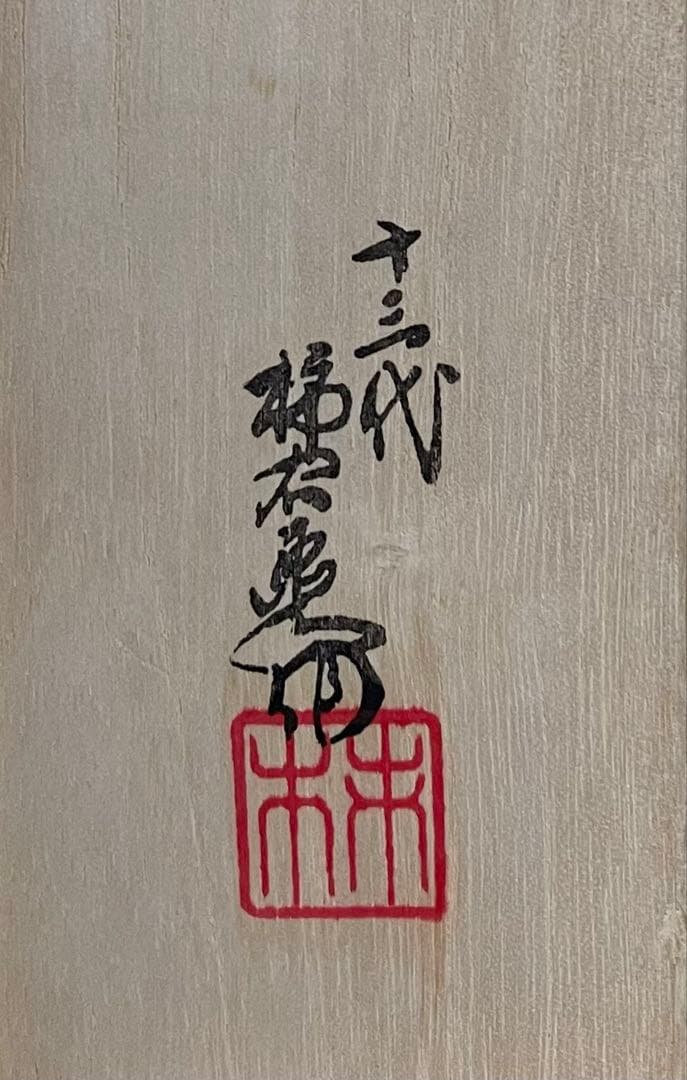 十三代
柿右衛門
林